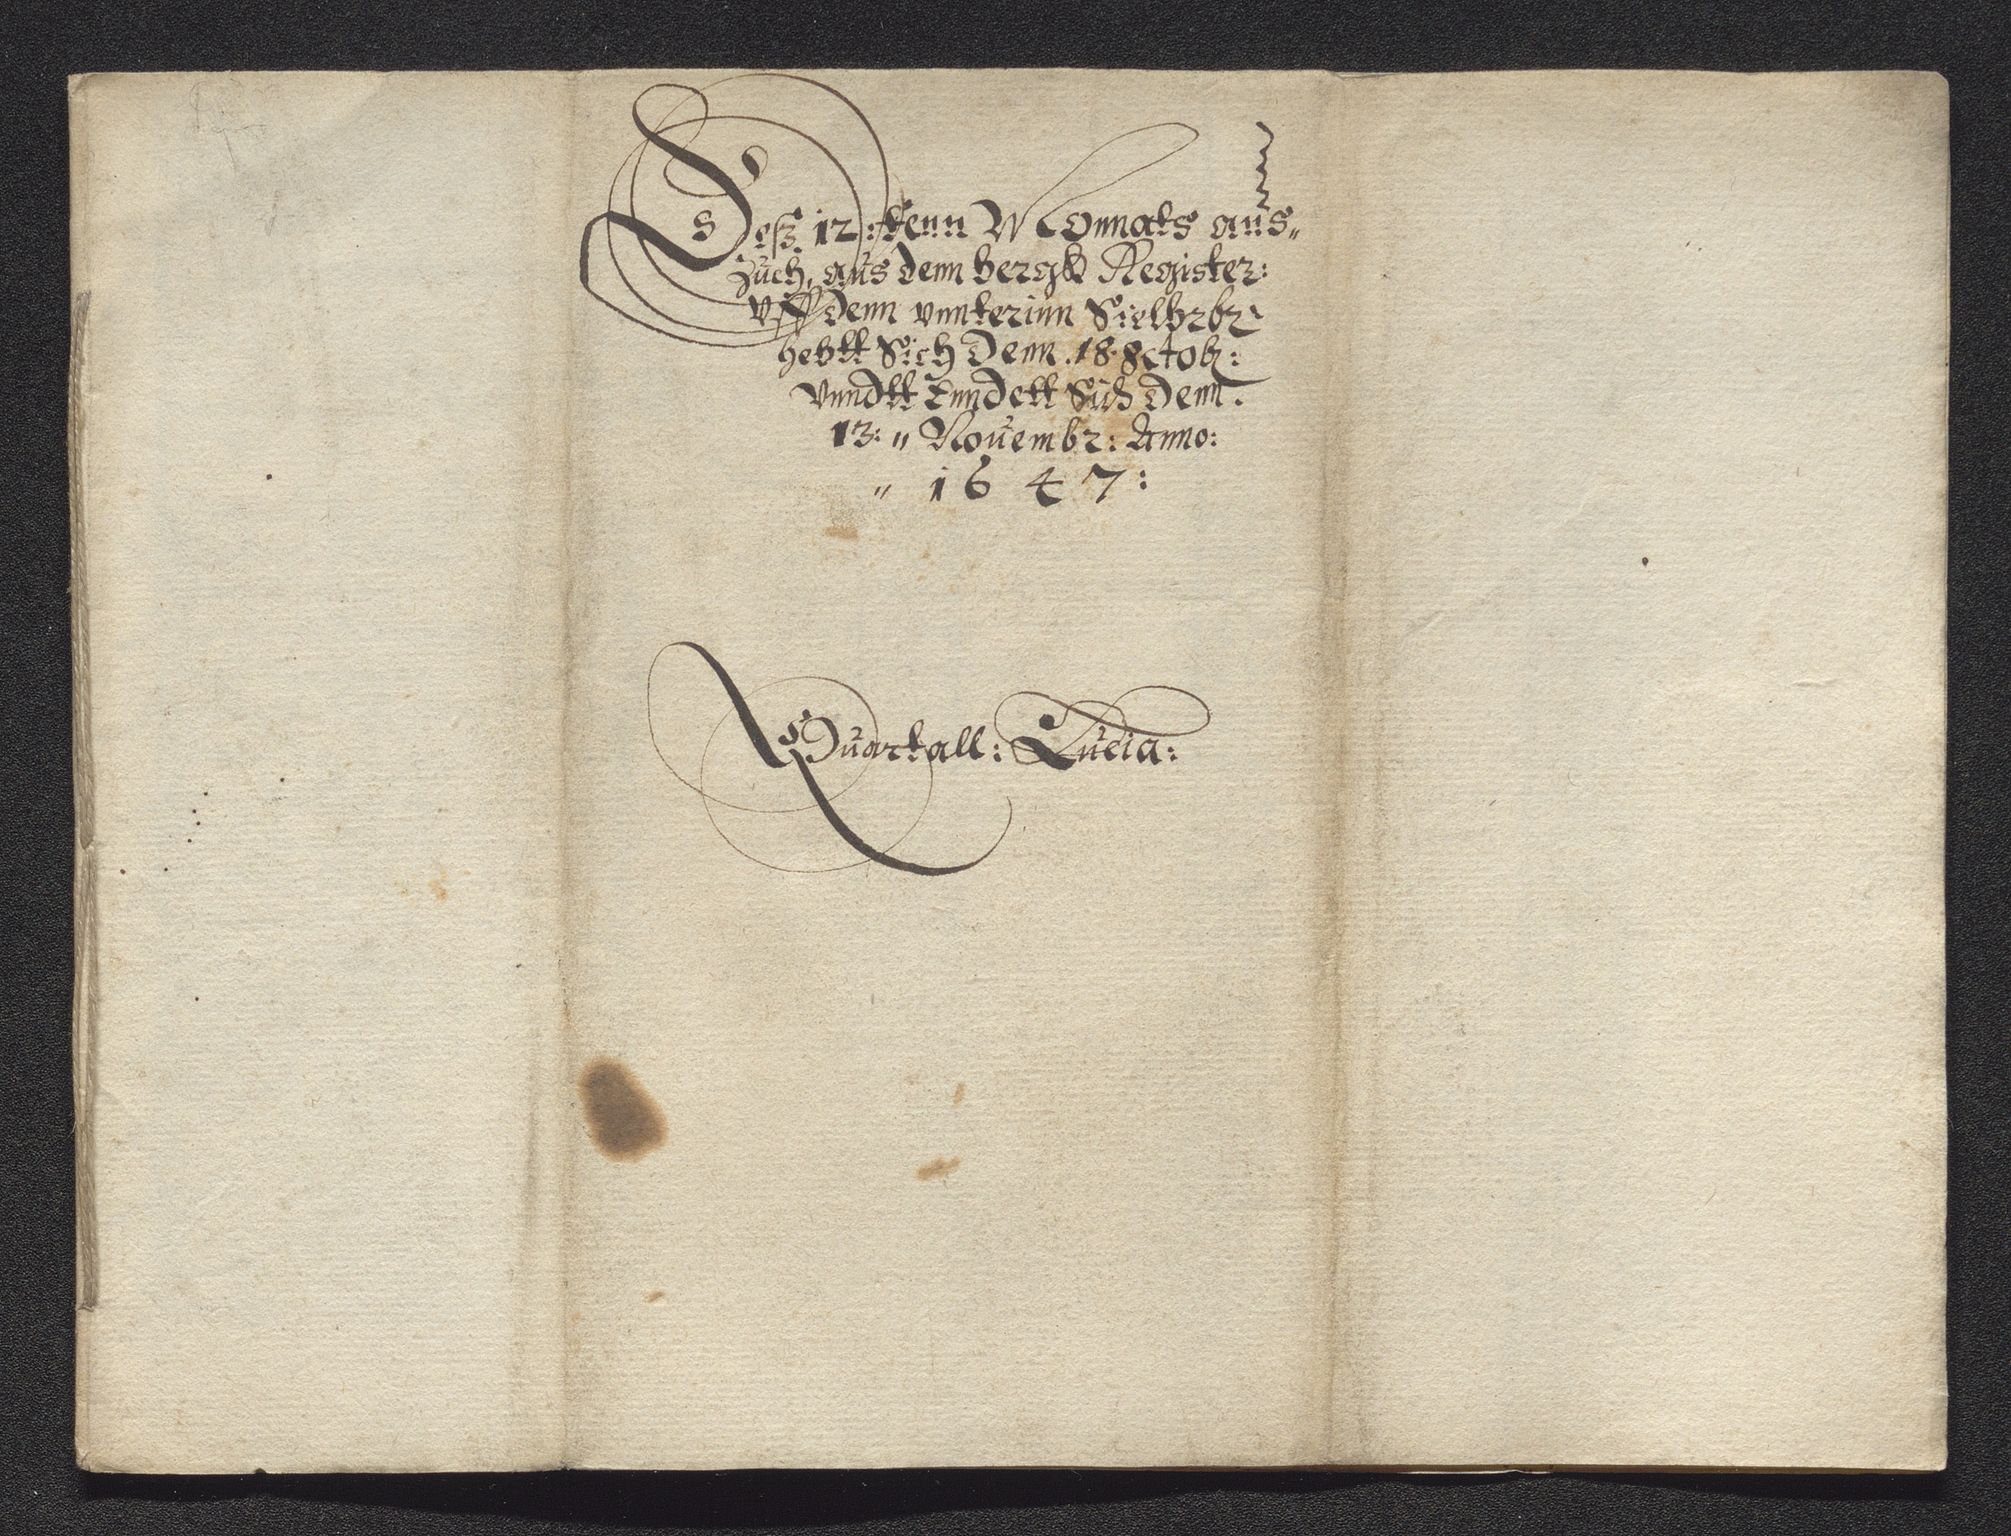 Deß 12:tenn Monnats aus„
Zuch, aus denn bergk Register:
vff denn vnnterinn
hebtt Sich Denn .18. 8ctob:
Vnndtt Enndett Sich Denn.
13: „ Nouembr: Anno:
„ 1647:
Quartall: Lucia: